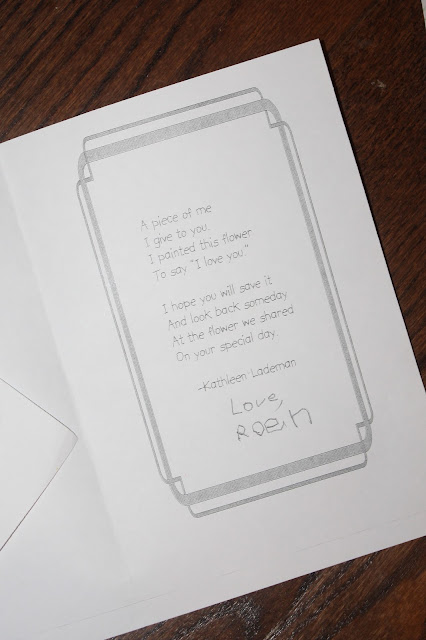 A piece of me
I give to you.
I painted this flower
To say "I love you."
I hope you will save it
And look back someday
At the flower we shared
On your special day.
-Kathleen Lademan
Love,